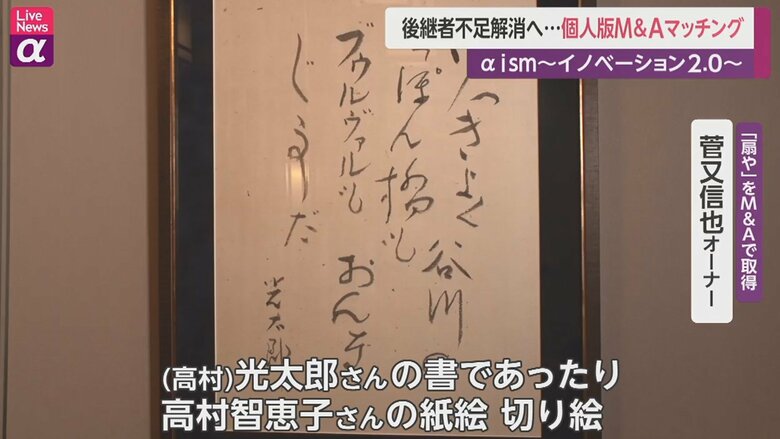 Live News α
後継者不足解消へ…個人版M&Aマッチング
αism~イノベーション2.0~
「扇や」をM&Aで取得
菅又信也オーナー
きよく谷川
ぽん橋も
ブウルヴァルも おんな
じ だ
光太郎
(高村)光太郎さんの書であったり
高村智恵子さんの紙絵 切り絵